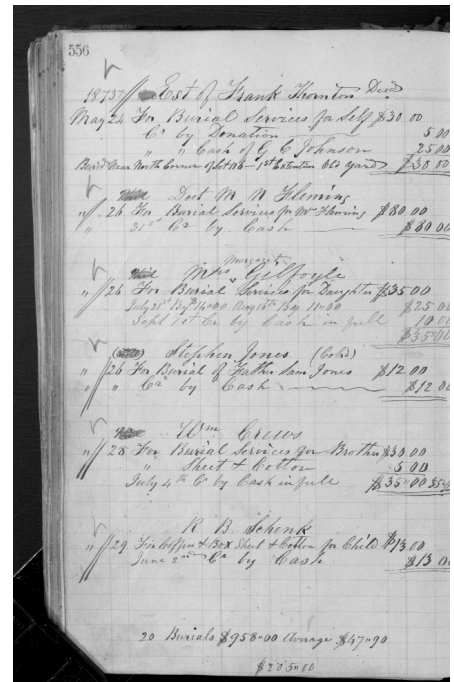 556
1873 Est of Frank Thornton Decd
May 24 For Burial Services for Self $30 00
Cr by Donation 5 00
" " Cash of G C Johnson 25 00
Burd Near North Corner of Lot 118 1st Extention Old Yard $30 00
Doct M N Fleming
" 26 For Burial Services for Mrs Fleming $80 00
" 31st Cr by Cash $80 00
Margaret
Mrs Gilfoyle
" 26 For Burial Services for Daughter $35 00
July 21st By 14=00 Aug 16th By 11=00 $25 00
Sept 1st Cr by Cash in full 10 00
$35 00
Stephen Jones (Cold)
" 26 For Burial of Father Sam Jones $12 00
" " Cr by Cash $12 00
Wm Crews
" 28 For Burial Services for Brother $30 00
" Sheet & Cotton 5 00
July 4th Cr by Cash in full $35=00 35=00
R B Schenk
" 29 For Coffin & Box Sheet & Cotton for Child $13 00
June 2nd Cr by Cash $13 00
20 Burials $958=00 Average $47=90
$205=00